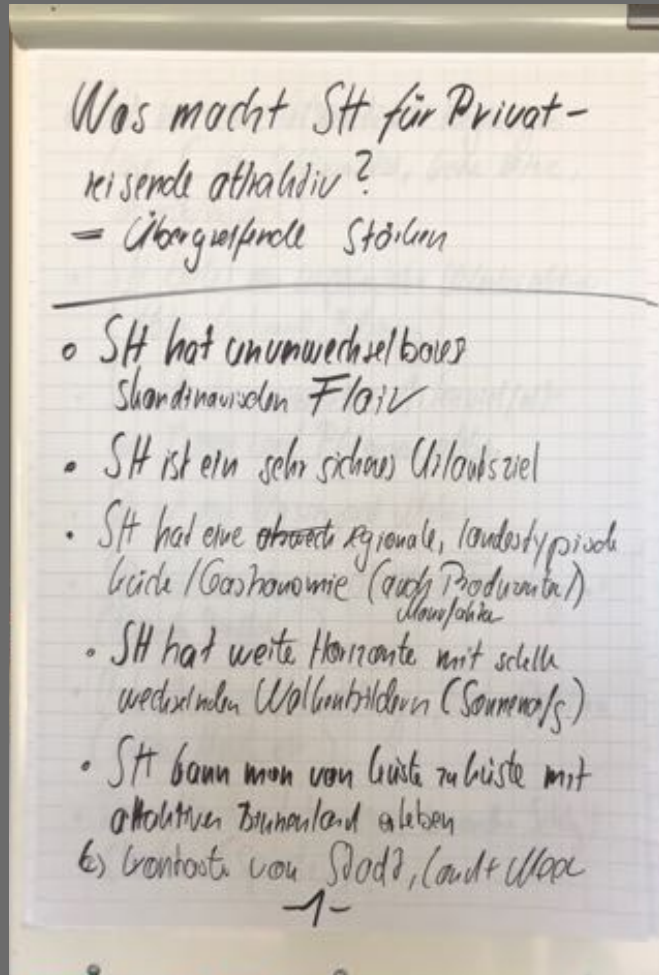 Was macht SH für Privat-
reisende attraktiv?
= Übergreifende Stärken
• SH hat unverwechselbares
skandinavischen Flair
• SH ist ein sehr sicheres Urlaubsziel
• SH hat eine regionale, landestypisch
Küche / Gastronomie (auch Produzenten)
Manufaktur
• SH hat weite Horizonte mit schnell
wechselnden Wolkenbildern (Sonnena/s)
• SH kann man von Küste zu Küste mit
attraktiven Binnenland erleben
Kontraste von Stadt, Land + Meer
-1-